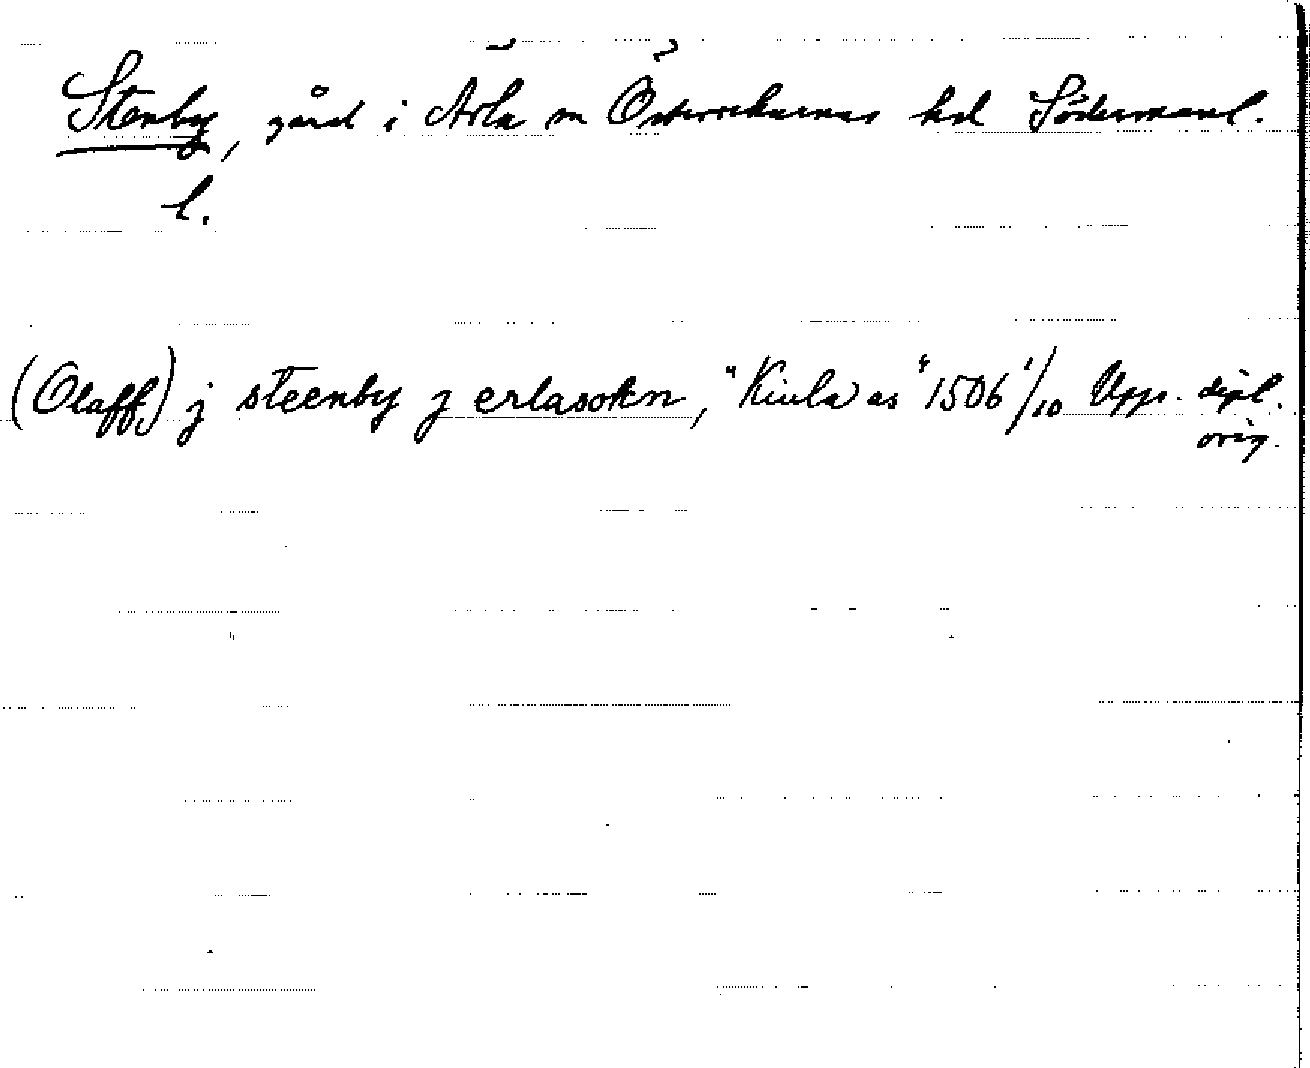 Stenby, gård i Ärla sn Österrekarnes hd Södermanl.
l.
(Olaff) j steenby j erlasokn, "Kiula as" 1506 1/10 Upps. dipl.
orig.